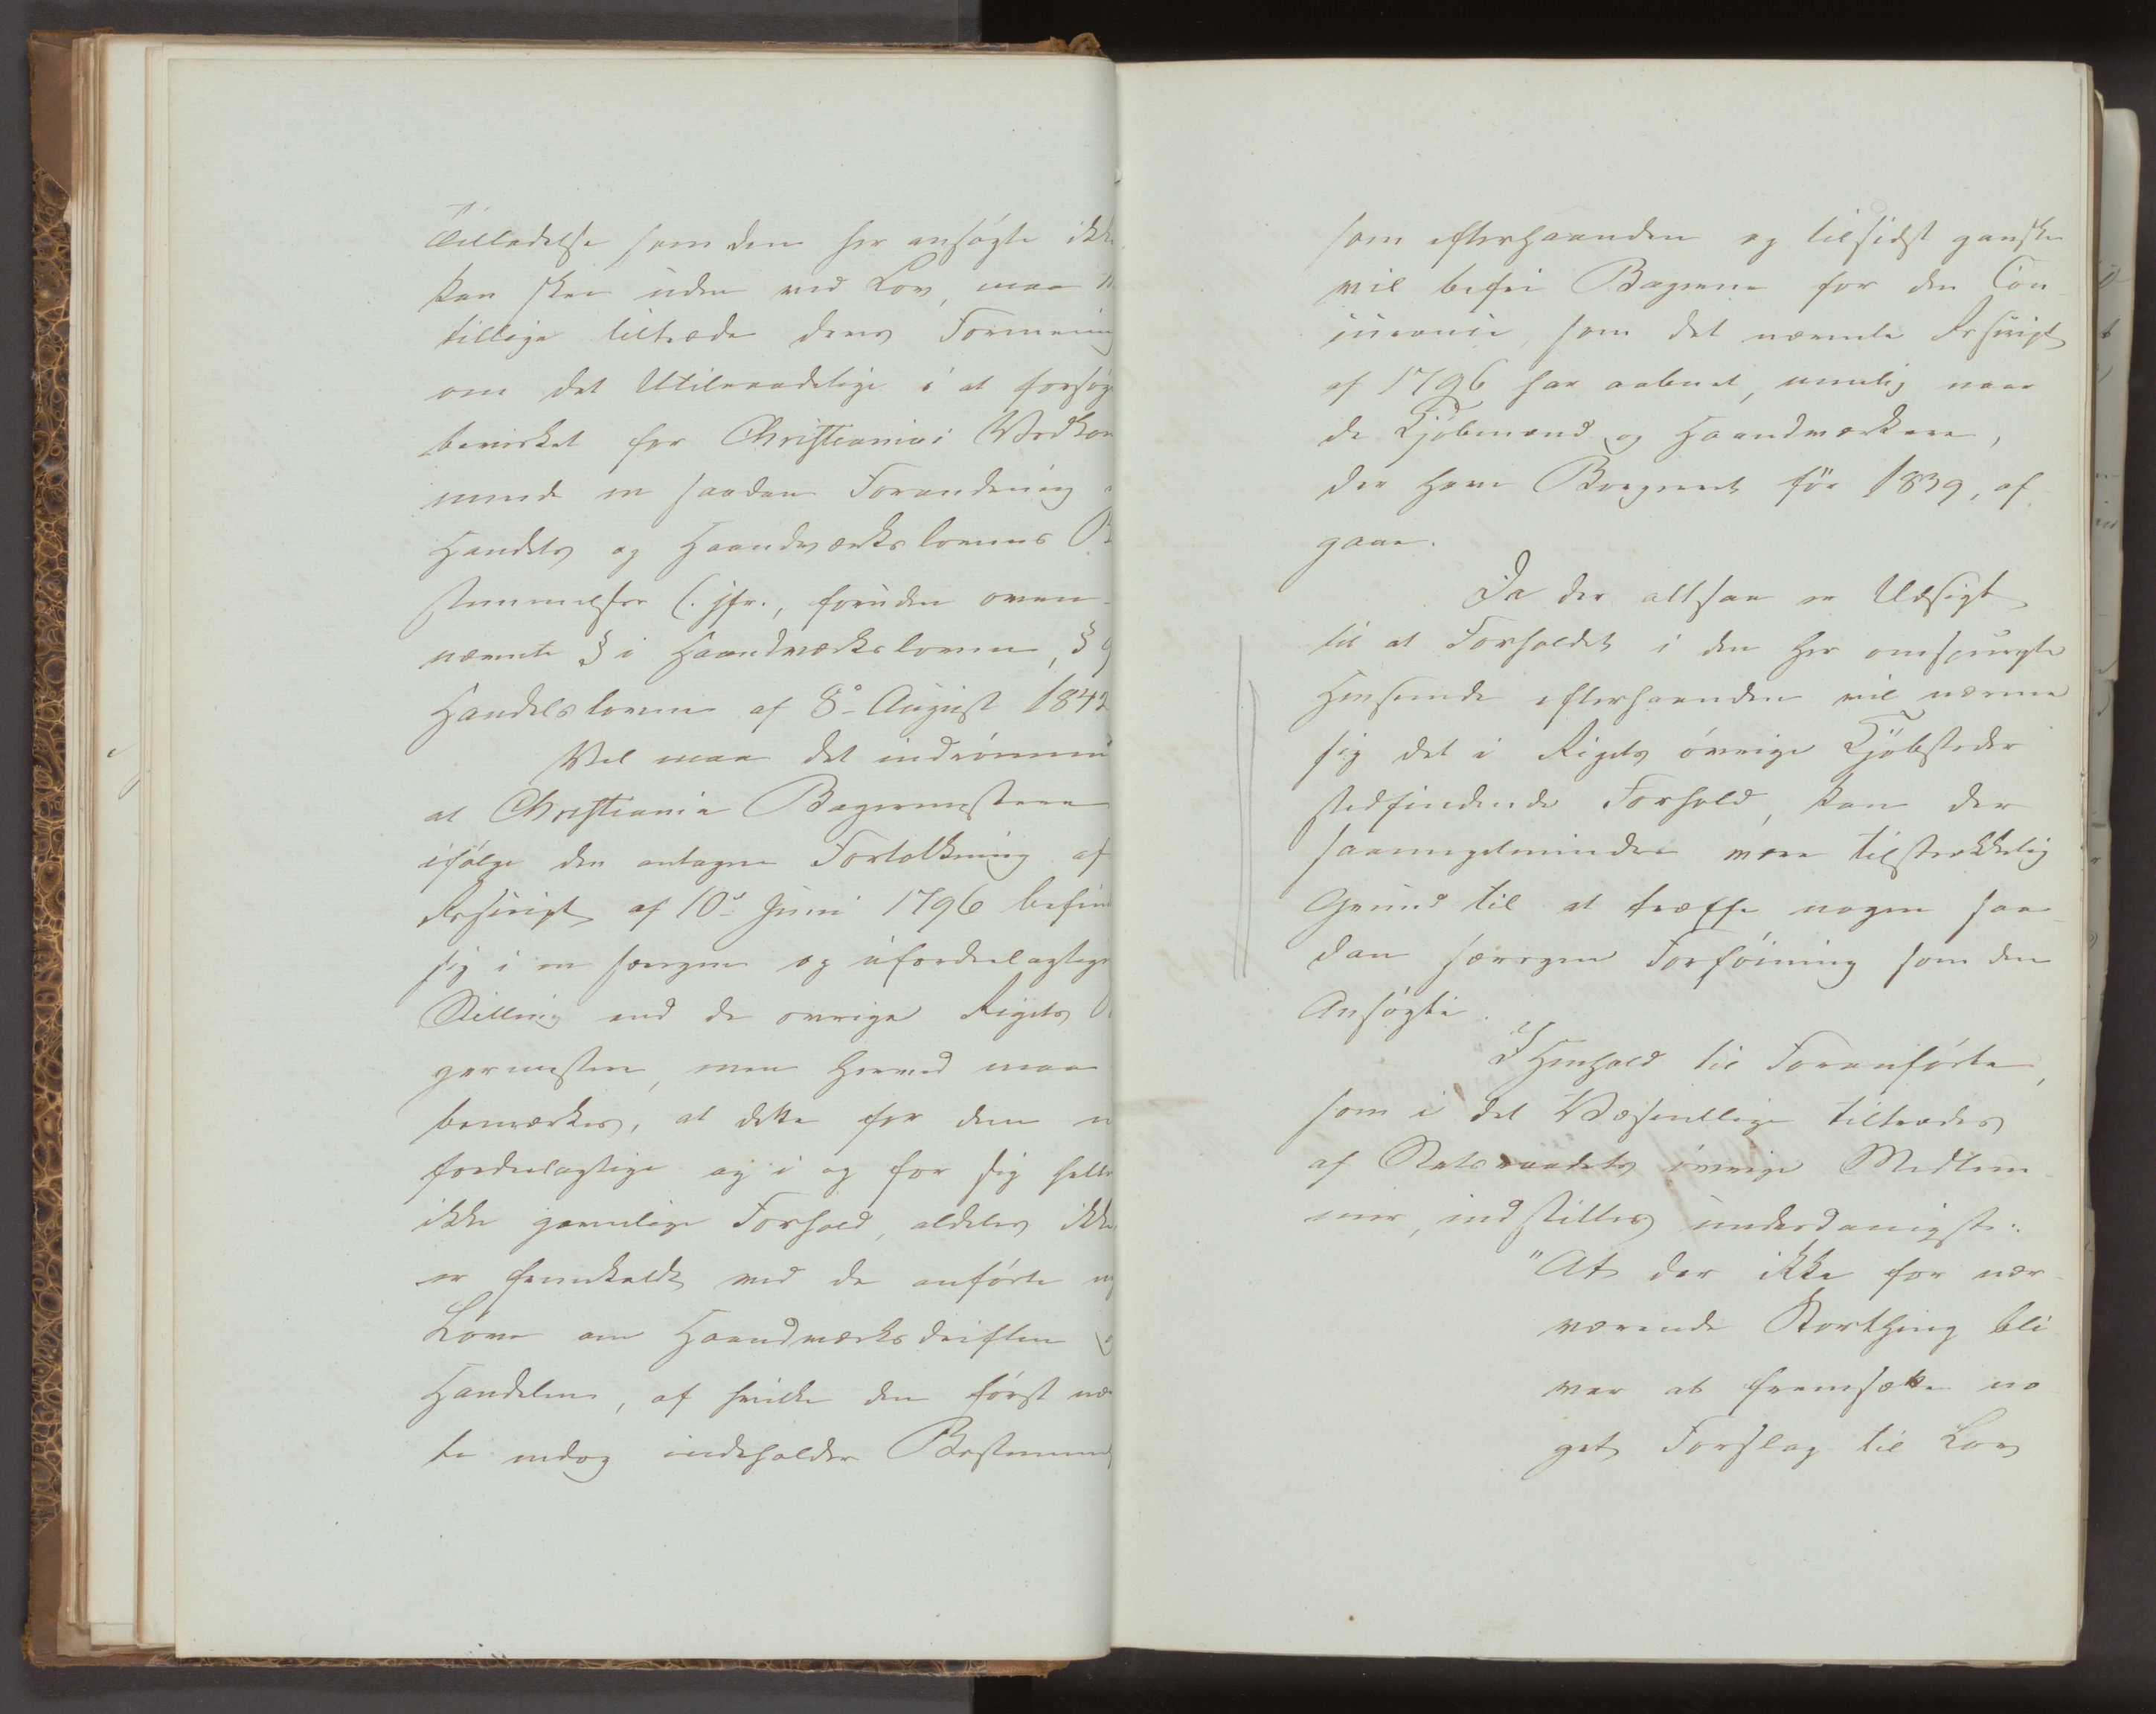 Tilladelse som den her ansøgte ikke
kan skee uden ved Lov, maa
tillige tiltræde dens Formening
om det Utilraadelige i at forsøge
bevirket for Christiania Vedkom
mende en saadan Forandring
Handels og Haandværkslovens Be
stemmelser (: jfr., foruden oven-
nævnte § i Haandværksloven, § 9
Handelsloven af 8de August 1842
Vel maa det indrømmes
at Christiania Bagermestere
ifølge den antagne Fortolkning af
Rescript af 10de Juni 1796 befinde
sig i en særegen og ufordeelagtige
Stilling end de øvrige Rigets Ba
germestere, men herved maa
bemærkes, at dette for dem u
fordeelagtige og i og for sig heller
ikke gavnlige Forhold, aldeles ikke
er fremkaldt ved de anførte ny
Love om Haandværksdriften o
Handelen, af hvilke den først næ
te endog indeholder Bestemmels
som efterhaanden og tilsidst ganske
vil befri Bagerne for den Con
currence, som det nævnte Rescript
af 1796 har aabnet, nemlig naar
de Kjøbmænd og Haandværkere,
der have Borgerret før 1839, af
gaae.
Da der altsaa er Udsigt
til at Forholdet i den her omspurgte
Henseende efterhaanden vil nærme
sig det i Rigets øvrige Kjøbsteder
stedfindende Forhold, kan der
saameget mindre være tilstrækkelig
Grund til at træffe nogen saa-
dan særegen Forføining som den
Ansøgte.
I Henhold til Foranførte,
som i det Væsentlige tiltrædes
af Statsraadets øvrige Medlem-
mer, indstilles underdanigst:
"At der ikke for nær-
værende Storthing bli
ver at fremsætte no
get Forslag til Lov